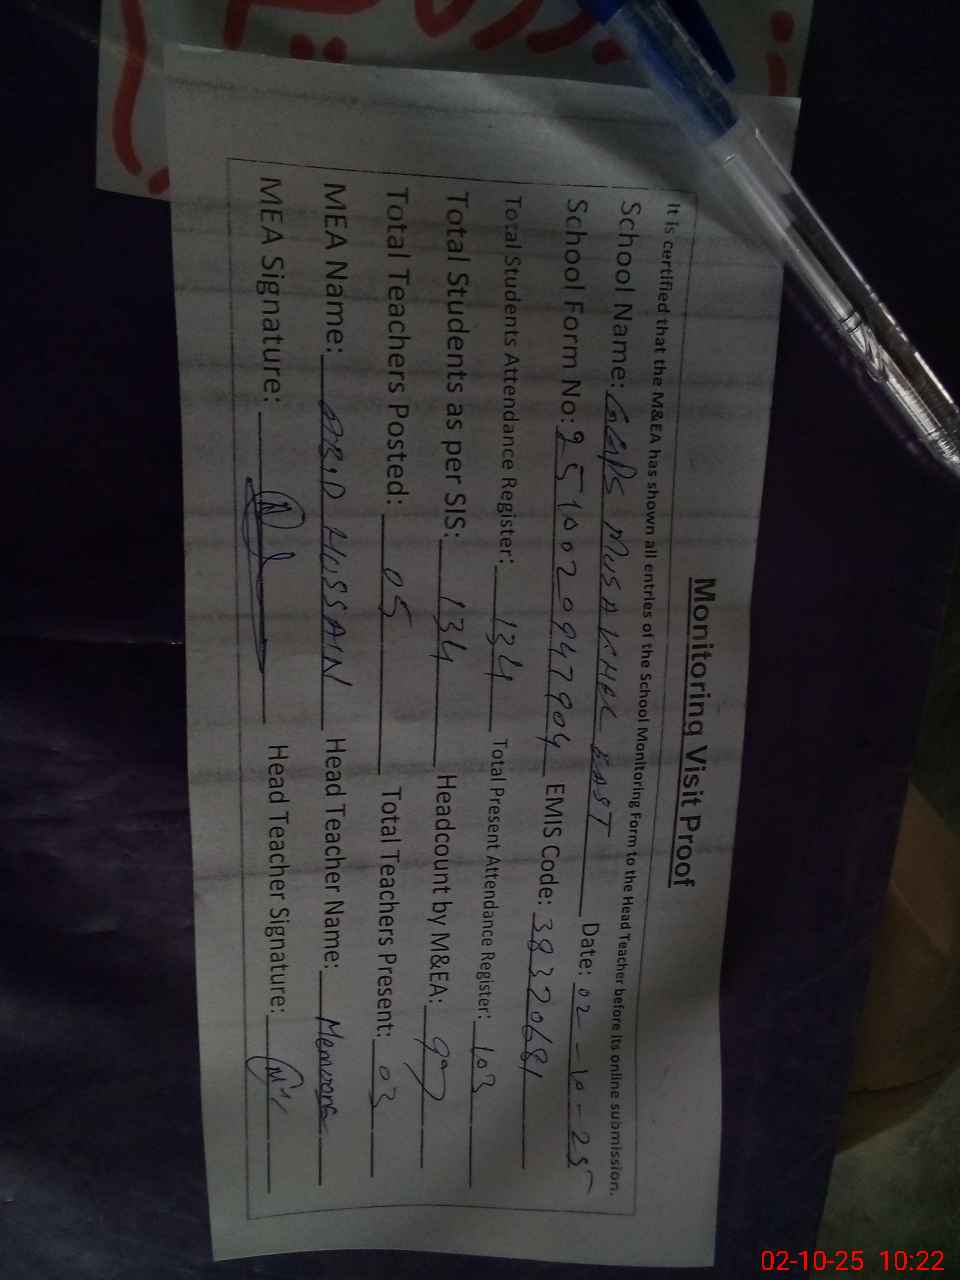 Monitoring Visit Proof
It is certified that the M&EA has shown all entries of the School Monitoring Form to the Head Teacher before its online submission.
School Name: GGPS MUSA KHEL EAST Date: 02-10-25
School Form No: 2510020947904 EMIS Code: 38320681
Total Students Attendance Register: 134 Total Present Attendance Register: 103
Total Students as per SIS: 134 Headcount by M&EA: 99
Total Teachers Posted: 05 Total Teachers Present: 03
MEA Name: ABID HUSSAIN Head Teacher Name:
MEA Signature: Head Teacher Signature:
02-10-25 10:22